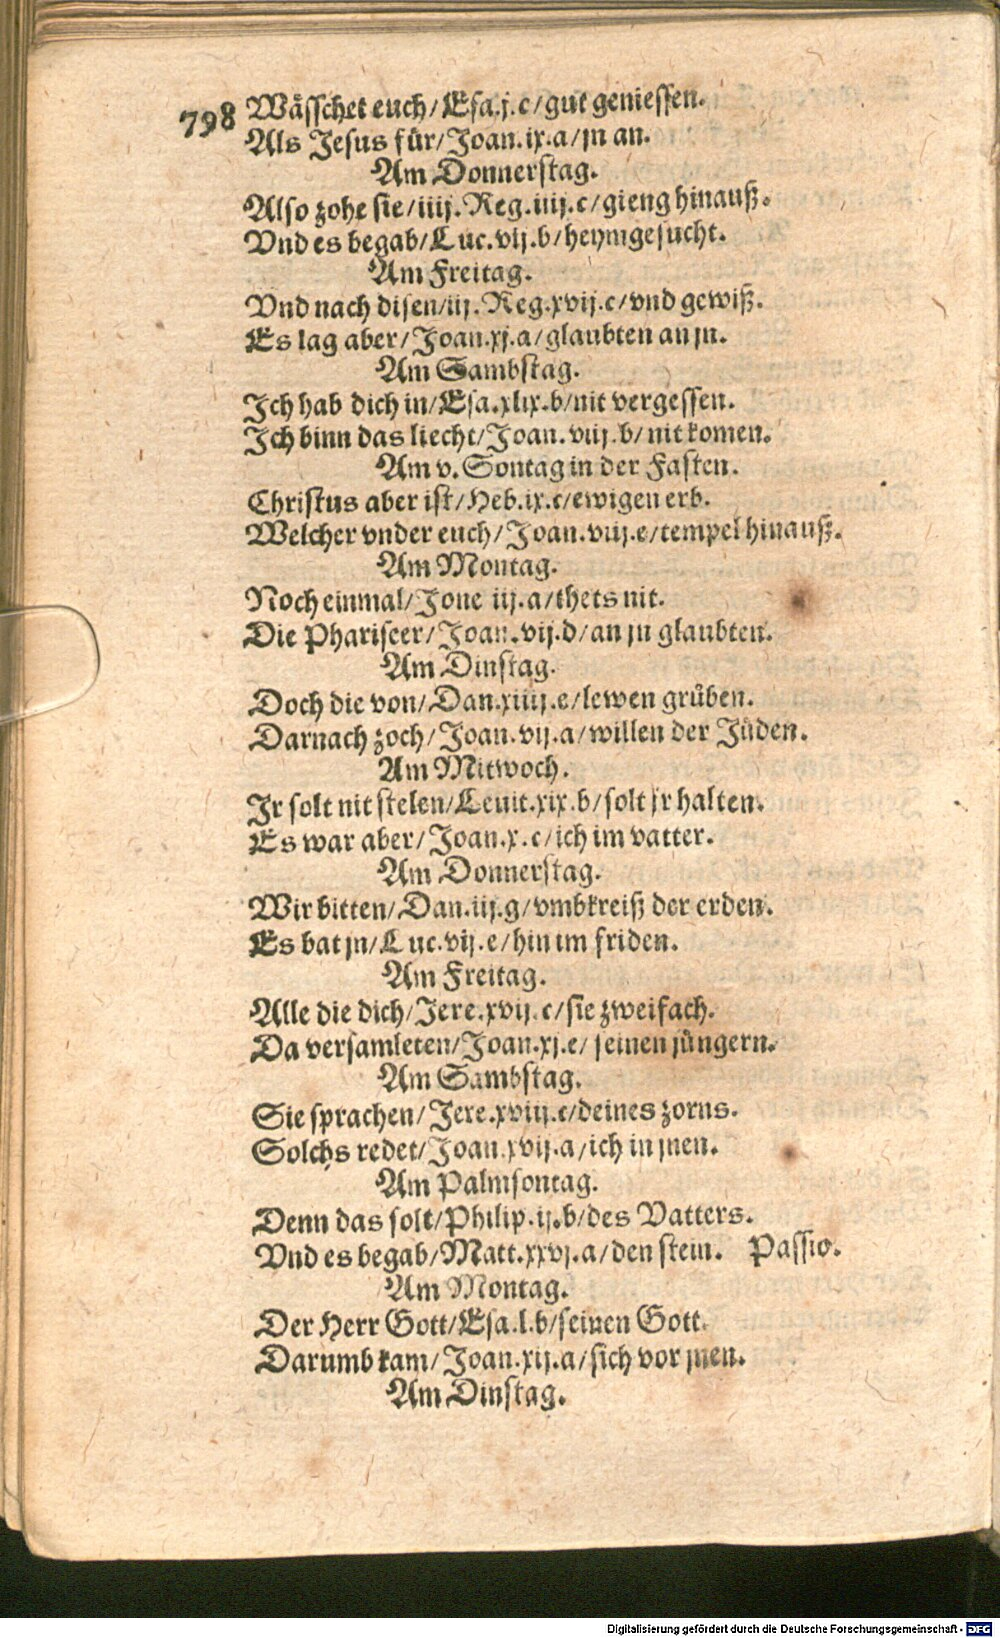 798 Wässchet euch/Esa.j.c/gut geniessen.
Als Jesus für/Joan.ix.a/jn an.
Am Donnerstag.
Also zohe sie/iiij.Reg.iiij.c/gieng hinauß.
Vnd es begab/Luc.vij.b/heymgesucht.
Am Freitag.
Vnd nach disen/iij.Reg.xvij.c/vnd gewiß.
Es lag aber/Joan.xj.a/glaubten an jn.
Am Sambstag.
Ich hab dich in/Esa.xlix.b/nit vergessen.
Ich binn das liecht/Joan.viij.b/nit komen.
Am v. Sontag in der Fasten.
Christus aber ist/Heb.ix.c/ewigen erb.
Welcher vnder euch/Joan.viij.e/tempel hinauß.
Am Montag.
Noch einmal/Jone iij.a/thets nit.
Die Phariseer/Joan.vij.d/an jn glaubten.
Am Dinstag.
Doch die von/Dan.xiiij.e/lewen grůben.
Darnach zoch/Joan.vij.a/willen der Jüden.
Am Mitwoch.
Jr solt nit stelen/Leuit.xix.b/solt jr halten.
Es war aber/Joan.x.c/ich im vatter.
Am Donnerstag.
Wir bitten/Dan.iij.g/vmbkreiß der erden.
Es bat jn/Luc.vij.e/hin im friden.
Am Freitag.
Alle die dich/Jere.xvij.c/sie zweifach.
Da versamleten/Joan.xj.e/seinen jüngern.
Am Sambstag.
Sie sprachen/Jere.xviij.c/deines zorns.
Solchs redet/Joan.xvij.a/ich in jnen.
Am Palmsontag.
Denn das solt/Philip.ij.b/des Vatters.
Vnd es begab/Matt.xxvj.a/den stein. Passio.
Am Montag.
Der Herr Gott/Esa.l.b/seinen Gott.
Darumb kam/Joan.xij.a/sich vor jnen.
Am Dinstag.
Digitalisierung gefördert durch die Deutsche Forschungsgemeinschaft - DFG